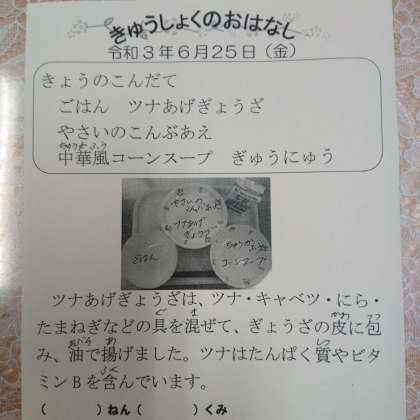 きゅうしょくのおはなし
令和3年6月25日（金）
きょうのこんだて
ごはん　ツナあげぎょうざ
やさいのこんぶあえ
中華風コーンスープ　ぎゅうにゅう
やさいの
こんぶあえ
ツナあげ
ぎょうざ
ごはん
ちゅうかふう
コーンスープ
ツナあげぎょうざは、ツナ・キャベツ・にら・
たまねぎなどの具を混ぜて、ぎょうざの皮に包
み、油で揚げました。ツナはたんぱく質やビタ
ミンBを含んでいます。
（　　　）ねん（　　　）くみ